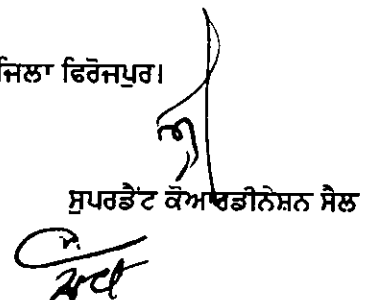 ਜਿਲਾ ਫਿਰੋਜਪੁਰ।
ਸੁਪਰਡੈਂਟ ਕੋਆਰਡੀਨੇਸ਼ਨ ਸੈਲ